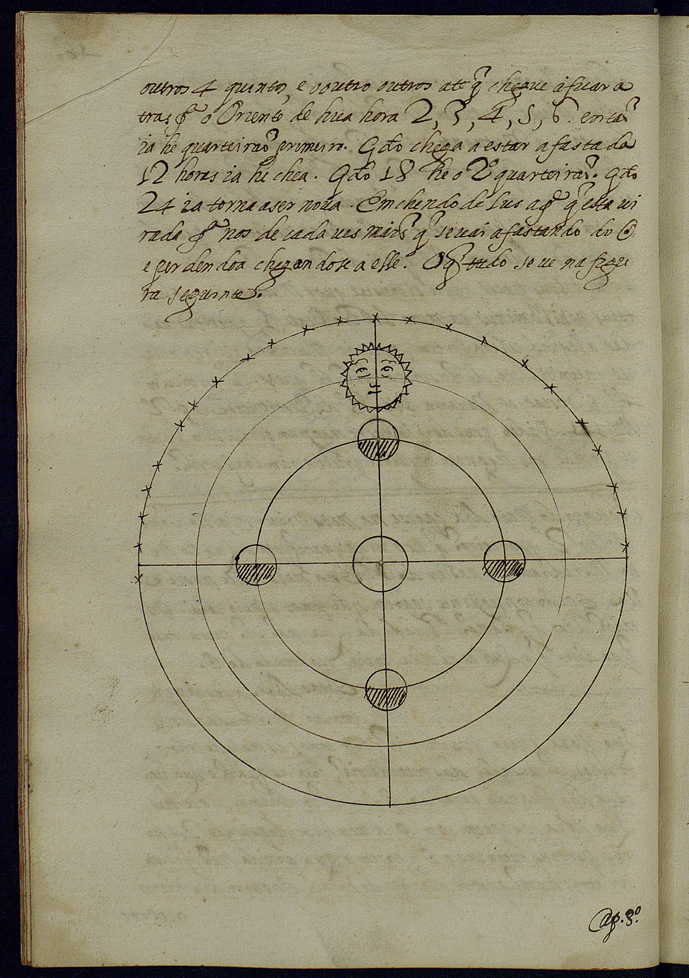 outros 4 quintos, e ooutro outros atè q̃ chegue a ficar a
tras p.ª o Oriente de hua hora 2, 3, 4, 5, 6. entaõ
ia he quarteiraõ primeiro. Qdo chega a estar afastada
12 horas ia he chea. Qdo 18 he o 2º quarteiraõ. Qdo
24 ia torna a ser nova. Enchendo de lus a q̃ està vi
rada p.ª nos de cada ves mais q̃ se vai afastando do
e perdendoa chegandose a elle. O q̃ tudo se ve na figu
ra seguinte.
Cap. 3º